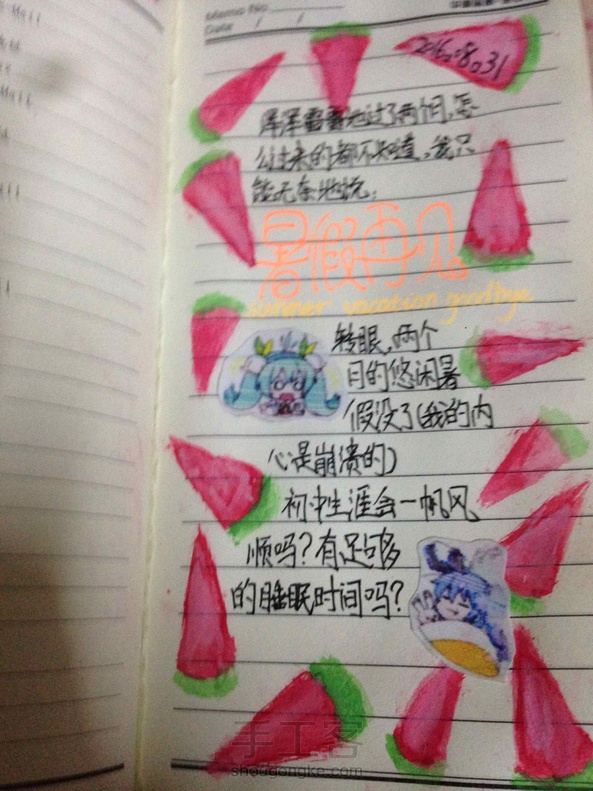 Memo No.
Date / /
2016.08.31
浑浑噩噩地过了两个月,怎
么过来的都不知道,我只
能无奈地说:
暑假再见
summer vacation goodbye
转眼,两个
月的悠闲暑
假没了(我的内
心是崩溃的)
初中生涯会一帆风
顺吗?有足够
的睡眠时间吗?
手工客
shougongke.com